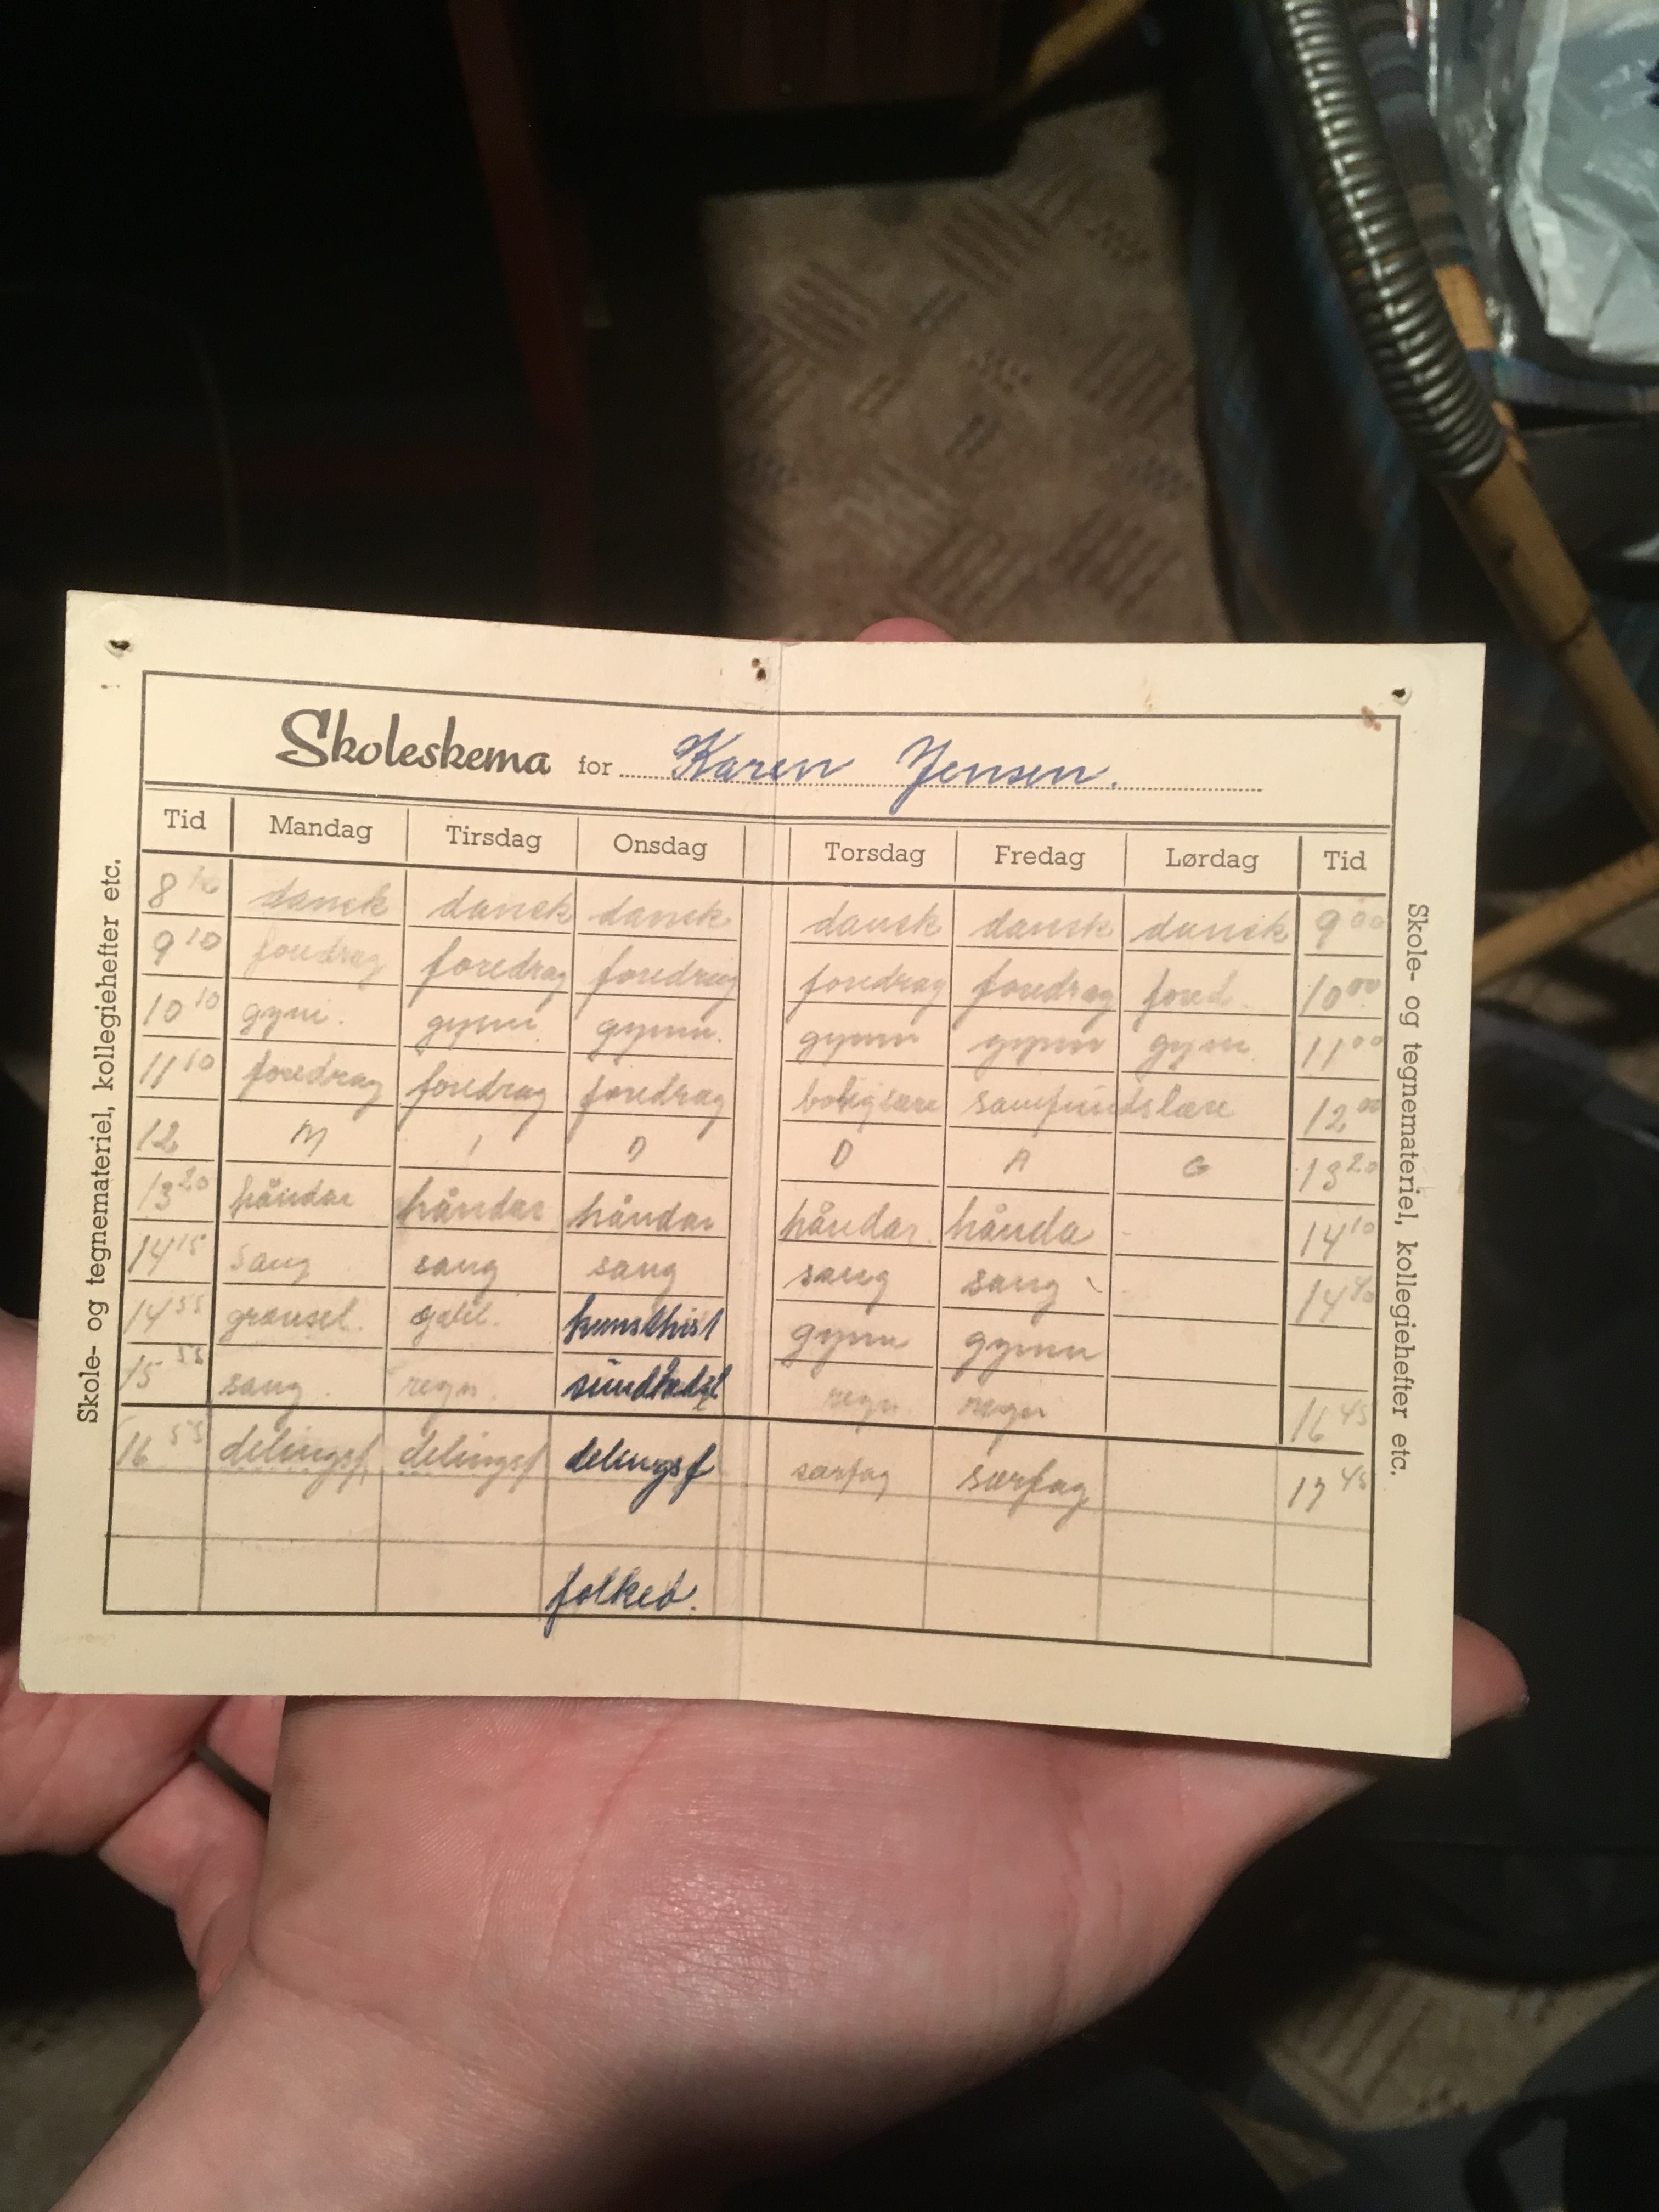 Skoleskema for Karen Jensen.
Tid Mandag Tirsdag Onsdag Torsdag Fredag Lørdag Tid
8 dansk dansk dansk dansk dansk dansk 9 00
9 10 foredrag foredrag foredrag foredrag foredrag fored. 10 00
10 10 gym. gymn. gymn. gymn gymn gymn 11 00
11 10 foredrag foredrag foredrag samfundslære 12 00
12 M I D D A G 13 20
13 20 håndar håndar håndar håndar. hånda 14 10
14 15 sang sang sang sang sang 14 40
14 55 kunsthist gymn gymn
15 55 sang. regn. regn. regn 16 45
16 55 delingsf delingsf delingsf særfag særfag 17 45
folked.
Skole- og tegnemateriel, kollegiehefter etc.
Skole- og tegnemateriel, kollegiehefter etc.